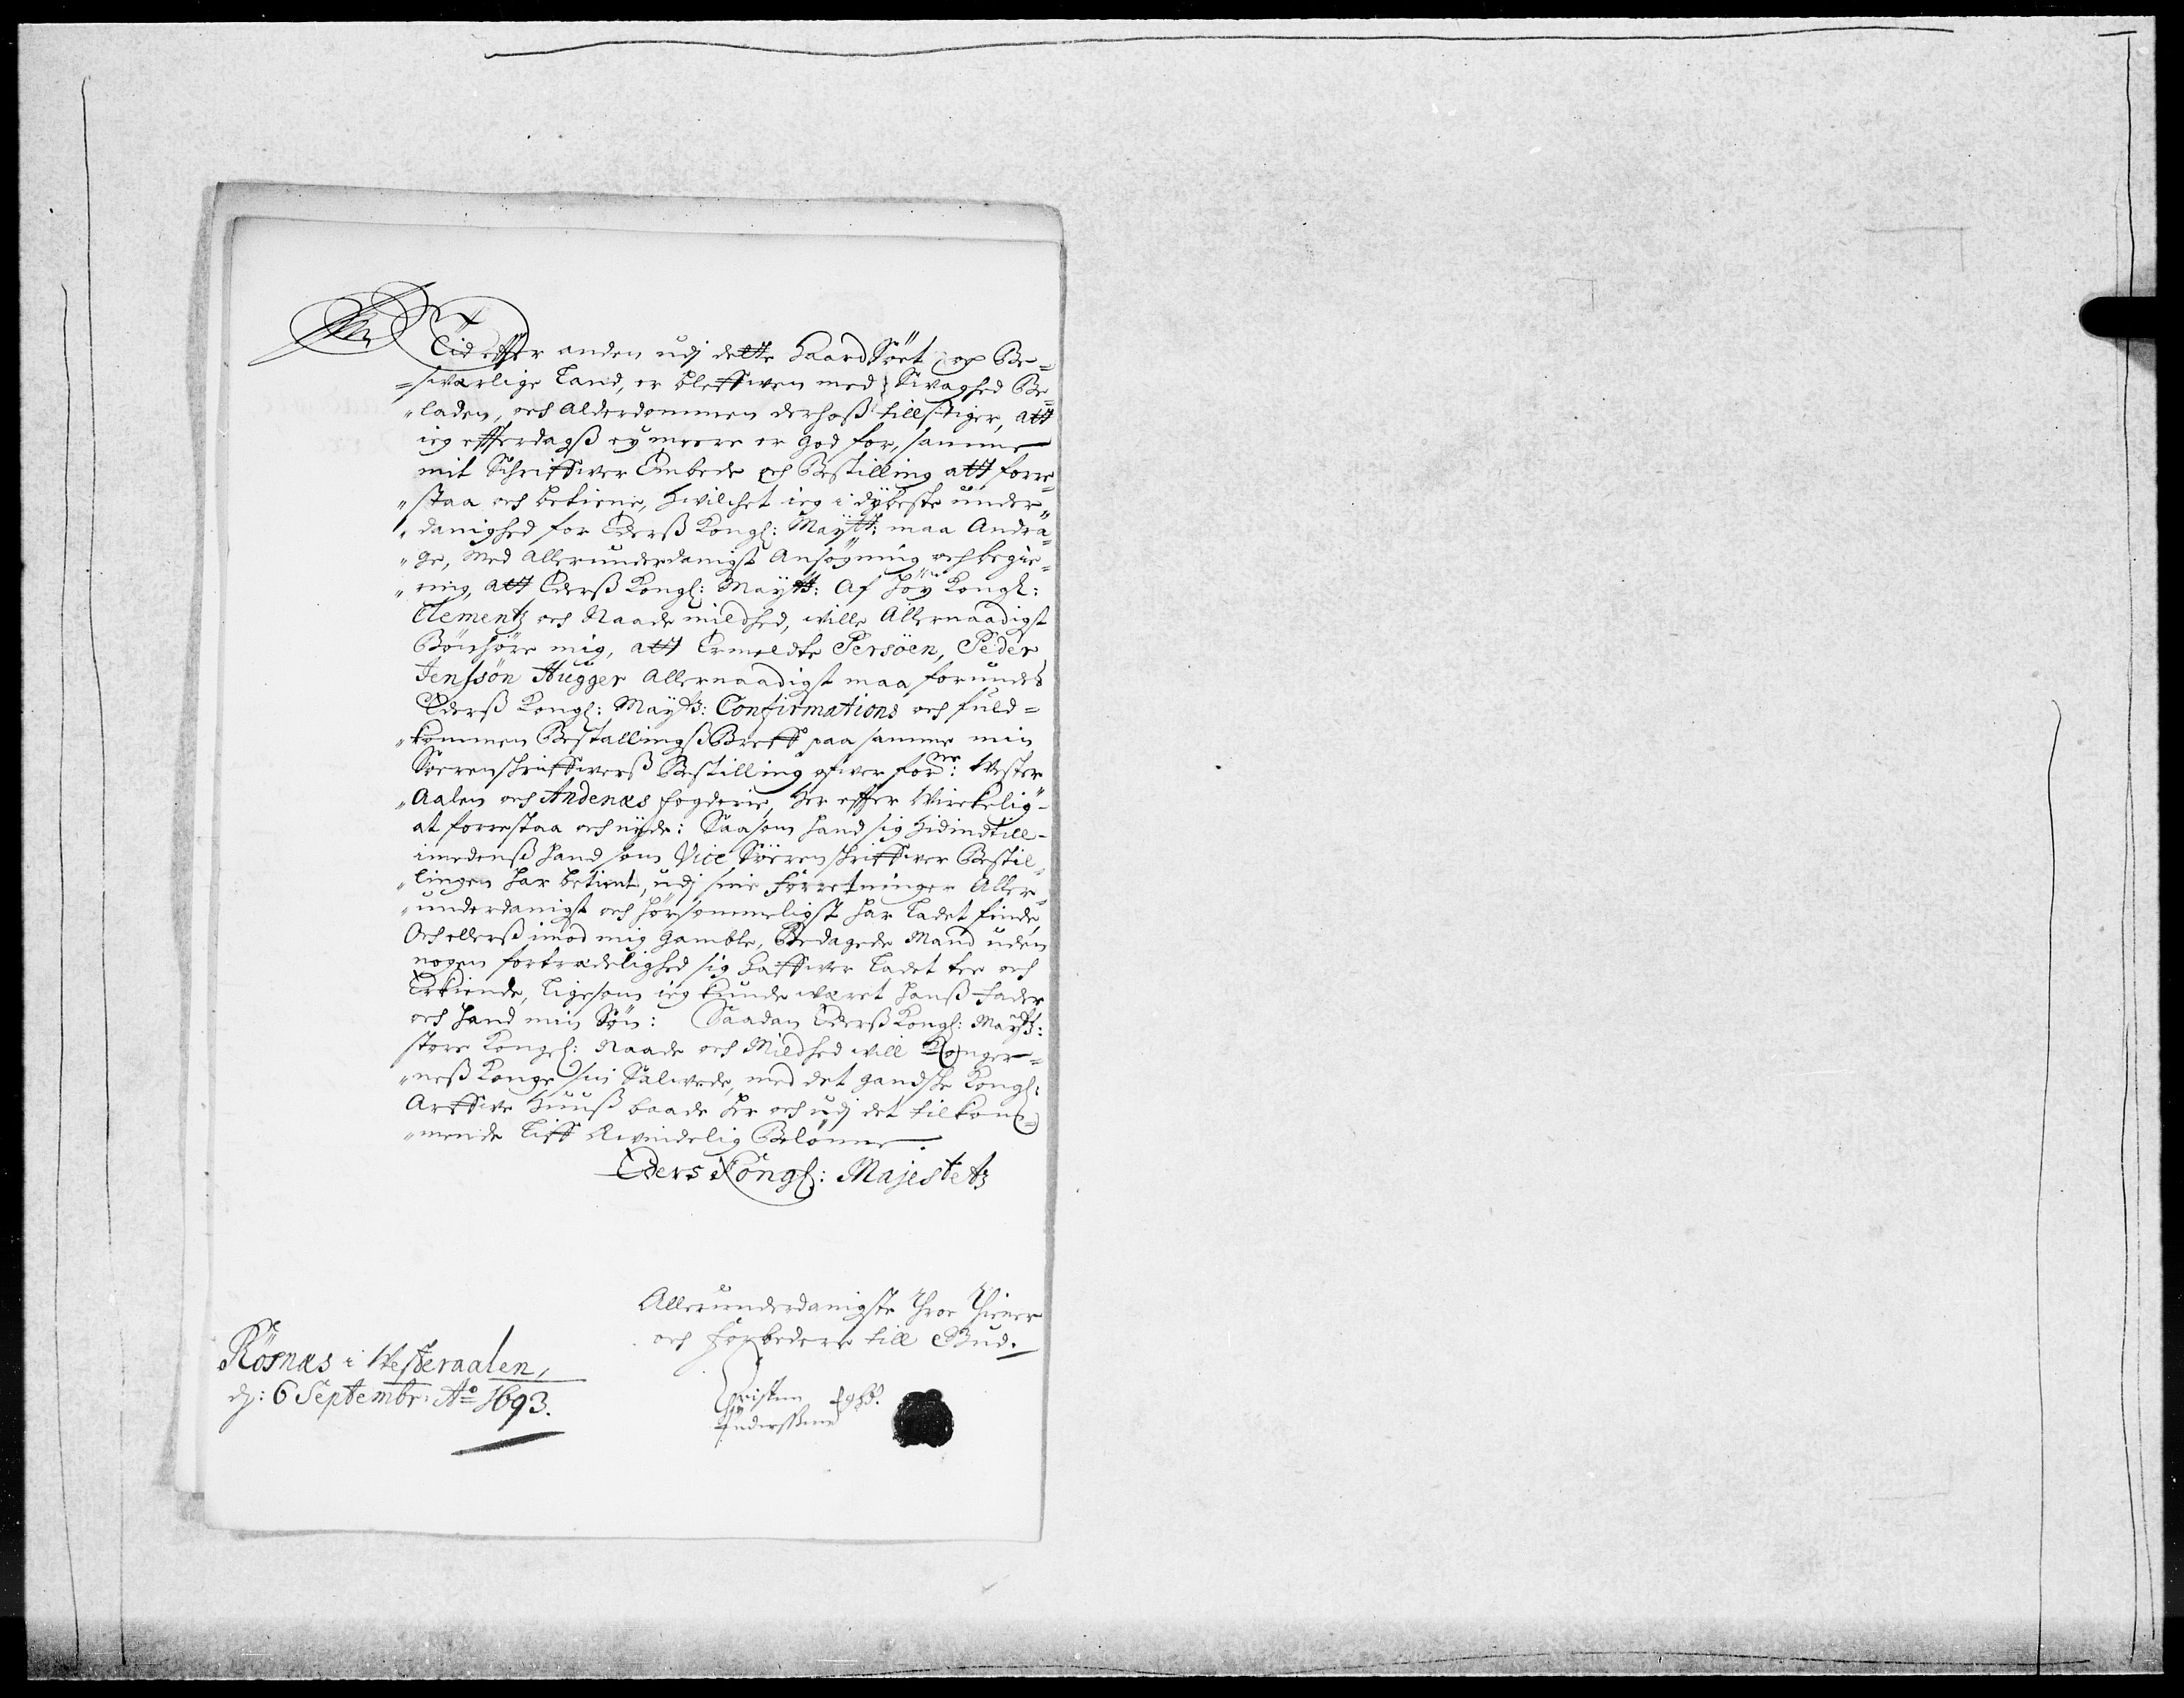 Tid effter anden udj dette haard Sört og Be=
=swærlige Land, er bleffwen med Swaghed Be=
"laden, och Alderdommen derhoß tillstiger, att
ieg effterdagß ey meere er god for, samme
mit Schriffwer Embede och Bestilling att forre=
"staa och betiene, Hwilchet ieg i dÿbeste under=
"danighed for Ederß Kongl: Maÿtt: maa Andra=
"ge, Med Allerunderdanigst Ansøgning och begie=
"ring, att Ederß Kongl: Maÿtt: Af høy Kongl:
Clementz och Naade mildhed, wille Allernaadigst
Bönhöre mig, att Ermeldte Persöen, Peder
Jenssön Hugger Allernaadigst maa forundes
Ederß Kongl: Maÿtz: Confirmations och fuld=
"kommen Bestallingß Breff paa samme min
Sorenschriffwerß Bestilling ofwer forne: Wester
"Aalen och Andenæs fogderie, her effter Wirckelig
at forrestaa och nyde: Saasom hand sig hidindtill
imedenß hand som Vice Sörenschriffwer Bestil=
"lingen har betient, udj sine Forretninger Aller=
"underdanigst och hörsommeligst har ladet finde,
Och ellerß imod mig gamble, Bedagede Mand uden
nogen fortrædelighed sig haffwer ladet tee och
Erkiende, ligesom ieg kunde wæret hanß fader
och hand min Sön: Saadan Ederß Kongl: Maÿtz:
store Kongel: Naade och Mildhed will Konger=
"neß Konge Sin Salwede, med det gandske Kongl:
Arffwe Huuß baade her och udj det tilkom=
"mende liff Ewindelig Belönne.
Eders Kongl: Majestetz
Allerunderdanigste Throe Thiener
och forbedere till Gud.
Christen
Anderssen
Rösnæs i Westeraalen,
dj: 6 Septembr: Ao 1693.